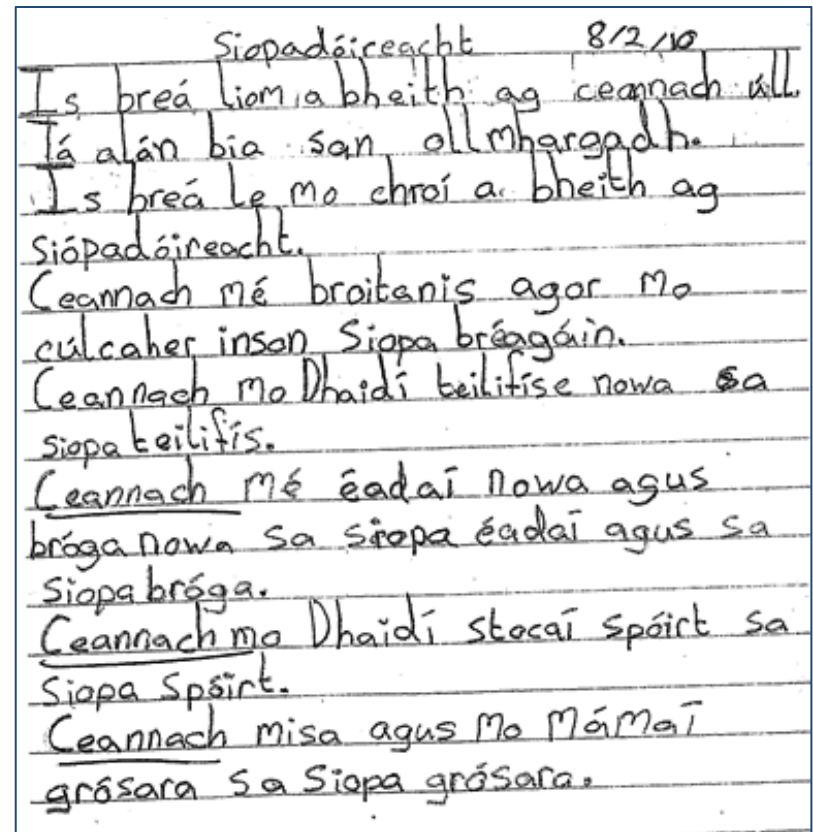 Siopadóireacht 8/2/10
Is breá liom a bheith ag ceannach úll
Tá alán bia san ollmhargadh.
Is breá le mo chroí a bheith ag
siópadóireacht.
Ceannach mé braitanis agar mo
cúlcaher insan Siopa bréagáin.
Ceannach mo Dhaidí teilifíse nowa sa
siopa teilifís.
Ceannach mé éadaí nowa agus
bróga nowa sa siopa éadaí agus sa
siopa bróga.
Ceannach mo Dhaidí stocaí spóirt sa
siopa spóirt.
Ceannach misa agus mo Mámaí
grósara sa Siopa grósara.